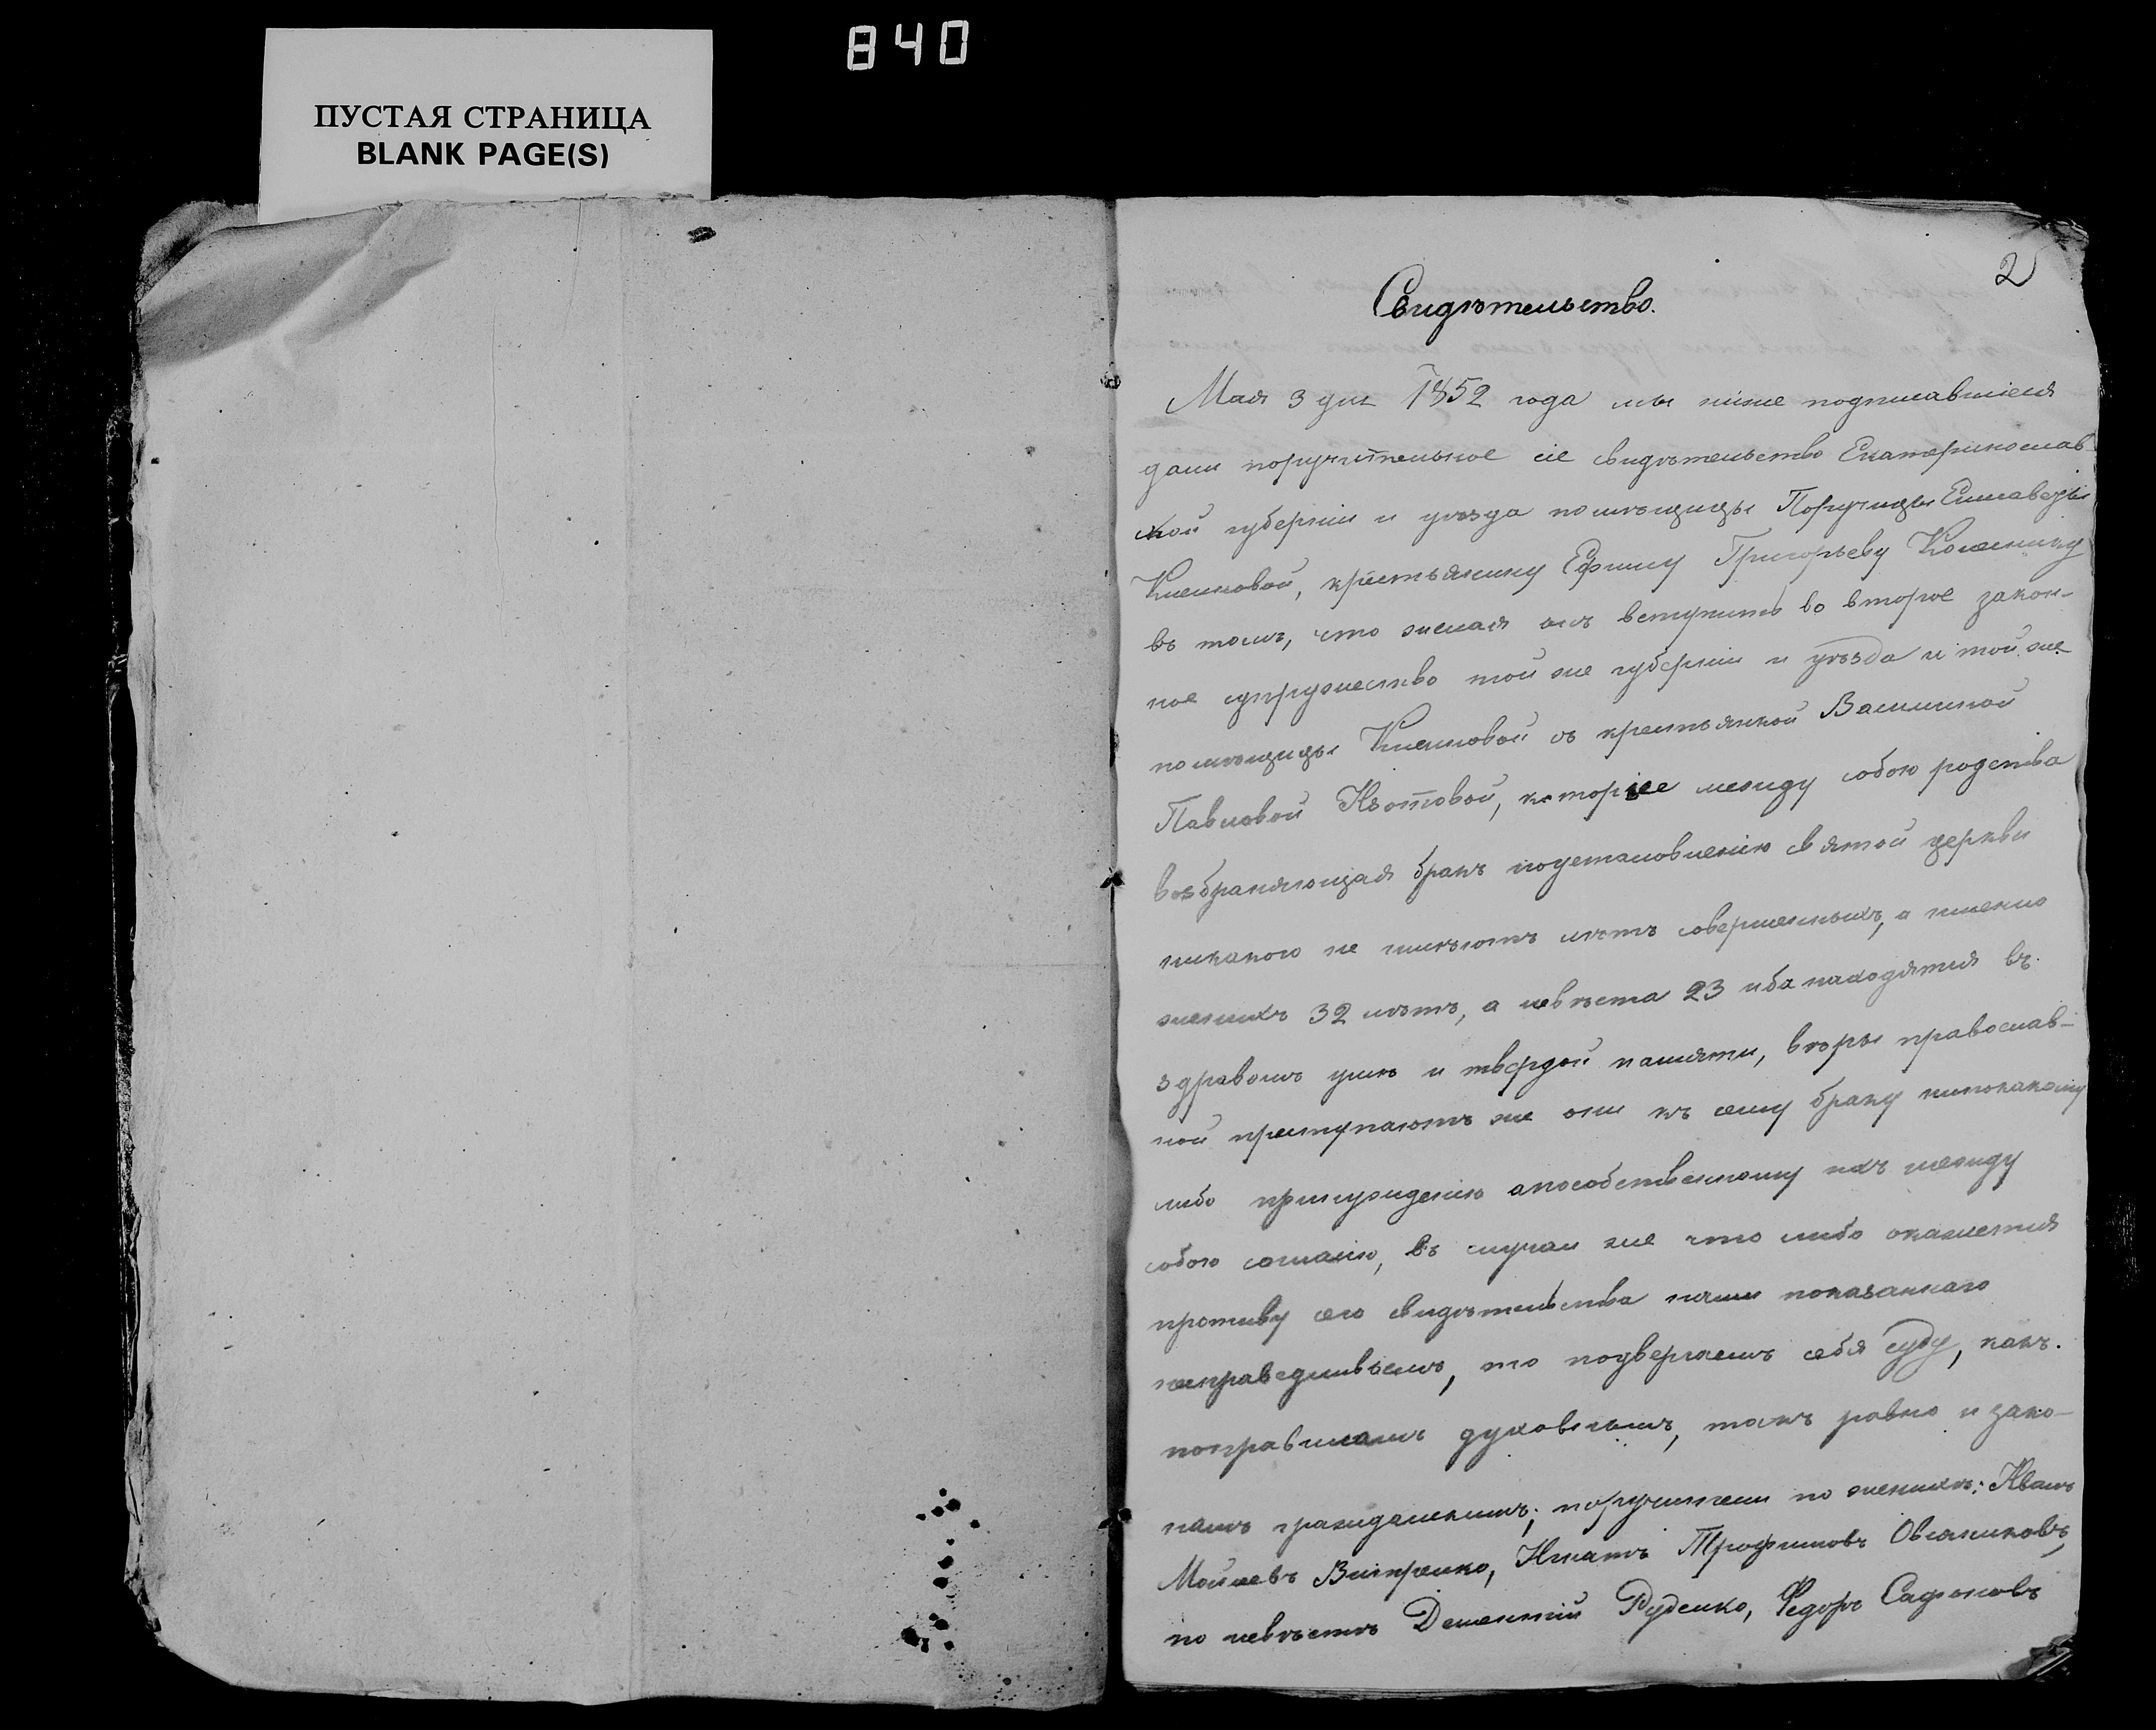 840
ПУСТАЯ СТРАНИЦА
BLANK PAGE(S)
2
Свидѣтельство.
Мая 3 дня 1852 года мы ниже подписавшіеся
дали поручительное сіе свидѣтельство Екатеринослав-
ской губерніи и уѣзда помѣщицы Поручицы Елисаветы
крестьянину Ефиму Григорьеву
въ томъ, что желая онъ вступить во второе закон-
ное супружество той же губерніи и уѣзда и той же
помѣщицы съ крестьянкой
Павловой Изотовой, которіе между собою родства
возбраняющая бракъ поустановленію святой церкви
никакого не имѣютъ лѣтъ совершенныхъ, а именно
женихъ 32 лѣтъ, а невѣста 23 иба находятся въ
здравомъ умѣ и твердой памяти, вѣры православ-
ной преступаютъ же они къ сему браку нипокакому
либо принуждению апособственному ихъ между
собою согласію, въ случаи же что либо окажется
противу сего свидѣтельства нами показаннаго
несправедливымъ, то подвергаемъ себя суду, какъ
поправиламъ духовнымъ, такъ равно и зако-
намъ гражданскимъ; поручители по женихѣ: Иванъ
Мойсеевъ Игнатъ Трофимовъ Овсяниковъ,
по невѣстѣ Дементій Руденко, Федоръ Сафоновъ